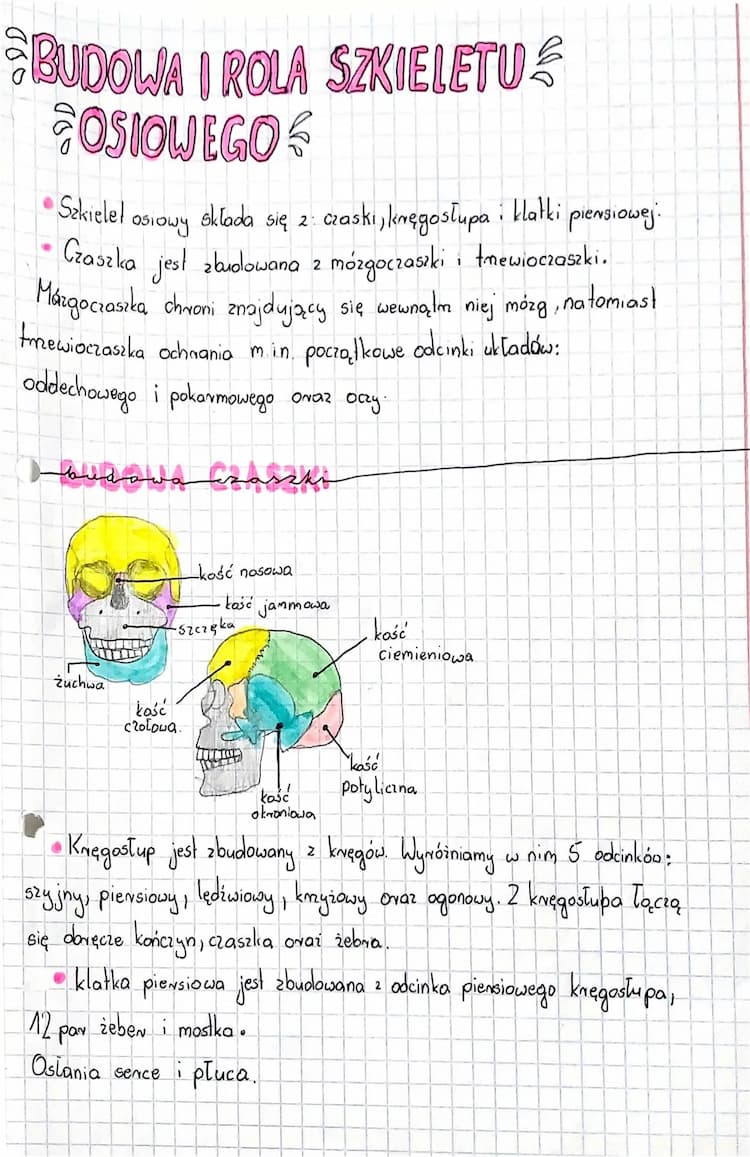 BUDOWA I ROLA SZKIELETU
OSIOWEGO
• Szkielet osiowy składa się z: czaski, kręgosłupa i klatki piersiowej.
• Czaszka jest zbudowana z mózgoczaszki i trzewioczaszki.
Mózgoczaszka chroni znajdujący się wewnątrz niej mózg, natomiast
trzewioczaszka ochrania m.in. początkowe odcinki układów:
oddechowego i pokarmowego oraz oczy.
budowa czaszki
kość nosowa
kość jarzmowa
szczęka
żuchwa
kość
czołowa.
kość
ciemieniowa
kość
potyliczna
kość
skroniowa
• Kręgosłup jest zbudowany z kręgów. Wyróżniamy w nim 5 odcinków:
szyjny, piersiowy, lędźwiowy, krzyżowy oraz ogonowy. Z kręgosłupa łączą
się obręcze kończyn, czaszka oraz żebra.
• klatka piersiowa jest zbudowana z odcinka piersiowego kręgosłupa,
12 par żeber i mostka.
Osłania serce i płuca.